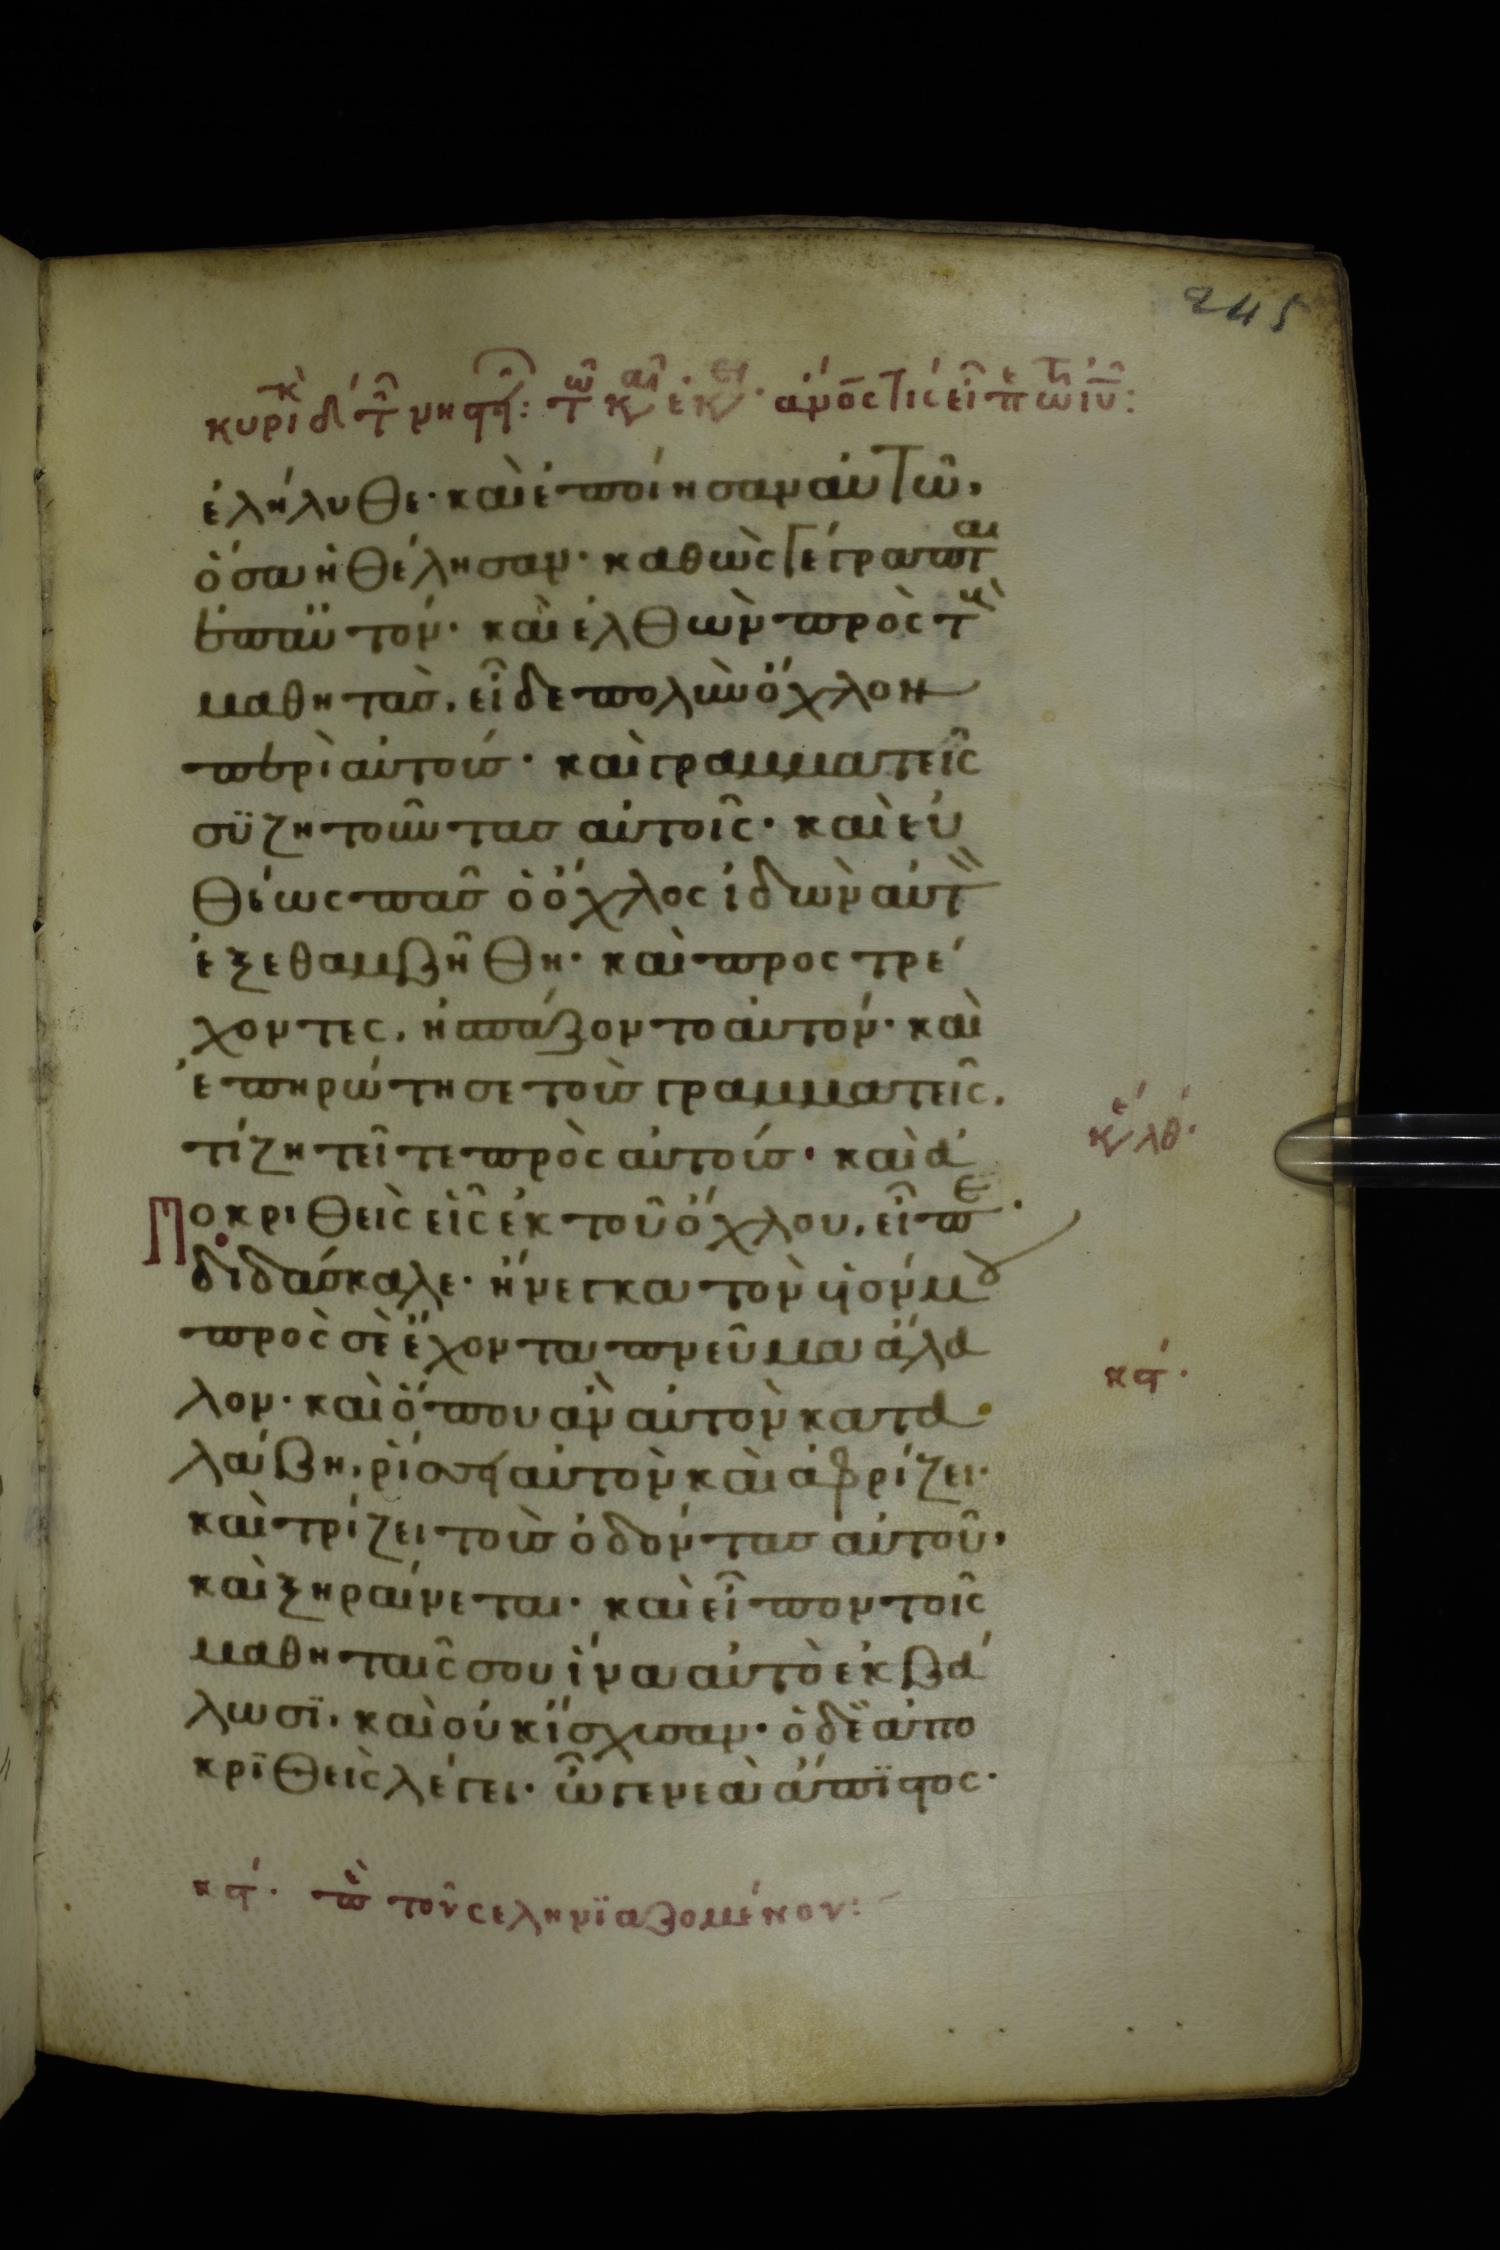 245
κυρια δ τ νηστ: τω καιρ εκει· ἄνος τις εἶπε τω ιυ:
ἐλήλυθε· καὶ ἐποίησαν αὐτῶ,
ὅσα ἠθέλησαν· καθὼς γέγραπται
ἐπ' αὐτόν· καὶ ἐλθὼν πρὸς τοὺς
μαθητὰς, εἶδε πολὺν ὄχλον
περὶ αὐτούς· καὶ γραμματεῖς
συζητοῦντας αὐτοῖς· καὶ εὐ
θέως πᾶς ὁ ὄχλος ἰδὼν αὐτὸν
ἐξεθαμβήθη· καὶ προστρέ
χοντες, ἠσπάζοντο αὐτόν· καὶ
ἐπηρώτησε τοὺς γραμματεῖς,
τί ζητεῖτε πρὸς αὐτούς· καὶ ἀ
ποκριθεὶς εἷς ἐκ τοῦ ὄχλου, εἶπε·
διδάσκαλε· ἤνεγκα τὸν υἱόν μου
πρὸς σὲ ἔχοντα πνεῦμα ἄλα
λον· καὶ ὅπου ἂν αὐτὸν κατα
λάβη, ρήσσει αὐτὸν καὶ ἀφρίζει·
καὶ τρίζει τοὺς ὀδόντας αὐτοῦ,
καὶ ξηραίνεται· καὶ εἶπον τοῖς
μαθηταῖς σου ἵνα αὐτὸ ἐκβά
λωσϊ, καὶ οὐκ ἴσχυσαν· ὁ δὲ ἀπο
κρϊθεὶς λέγει· ὦ γενεὰ ἄπϊστος·
κε λθ·
κϛ·
κϛ· πε τοῦ σεληνϊαζομένου: